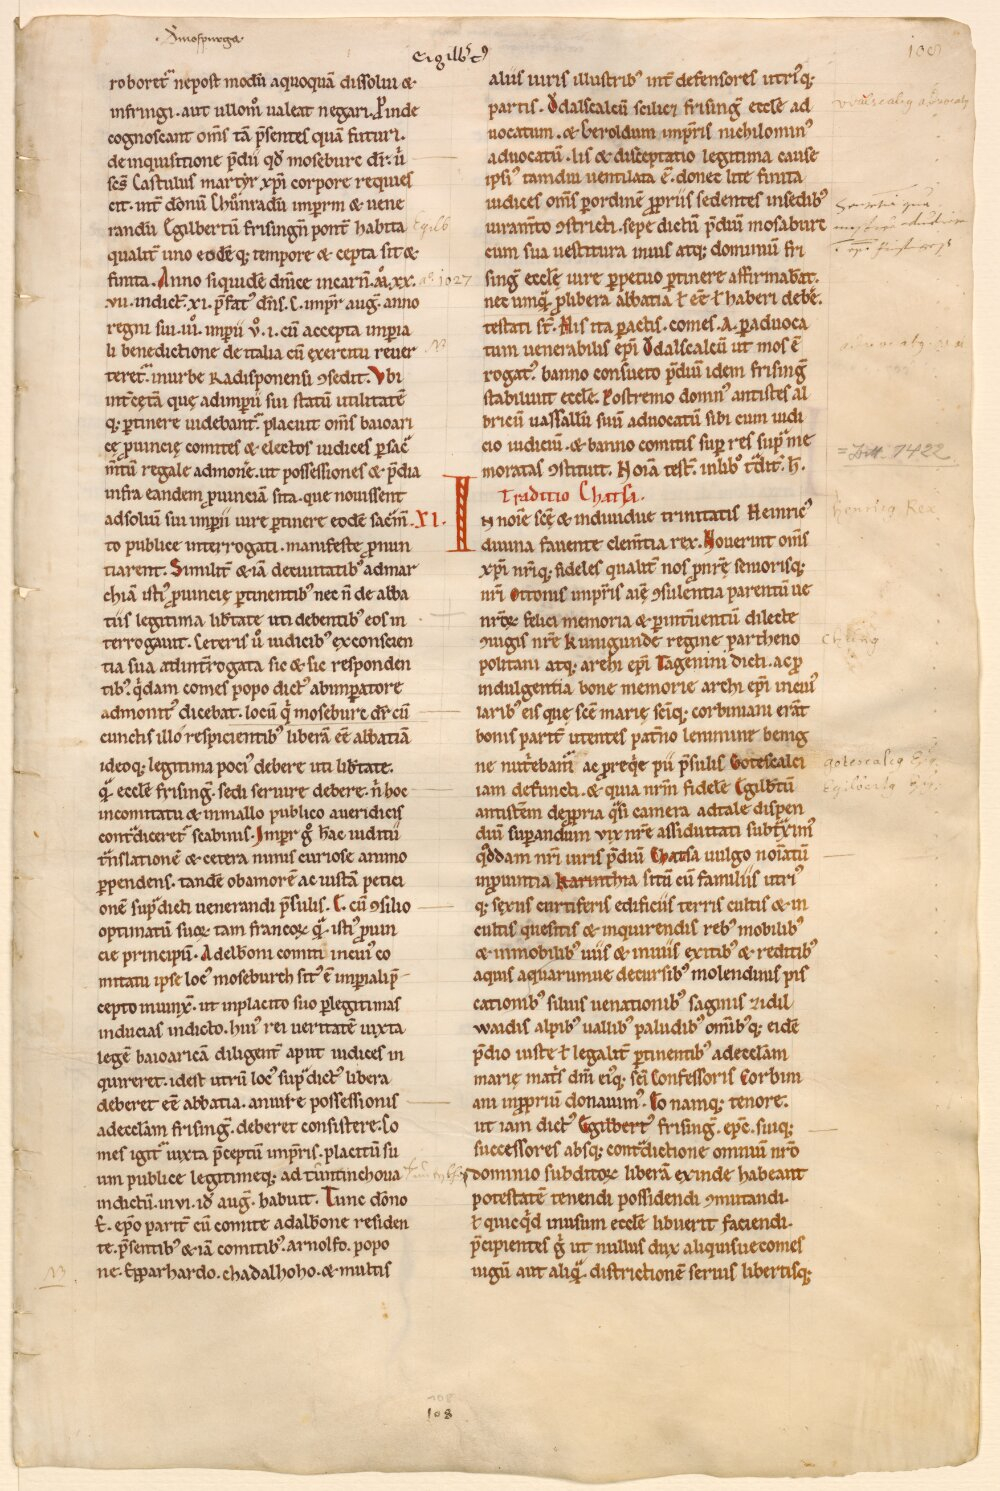 Mospurga
Eigilbͭꝰ
108
roboretᷓ nepost modū aquoquā dissolui &
infringi. aut ullom̄ ualeat negari. Proinde
cognoscant om̄s tā p̄sentes quā futuri.
deinquisitione p̄dii qd̄ mosebure dr̄. ū
sc̄s Castulus martyr xp̄i corpore requies
cit. int̄ donū Chůnradū imp̄rm & uene
randū Egilbertū frisingn̄ pont̄ habita
qualit̄ uno eodēq; tempore & cepta sit &
finita. Anno siquidē dn̄ice incarn̄. m̄. xx.
vii. indict̄. xi. p̄fat̄ dn̄s. C. imp̄r auḡ. anno
regni sui. iii. imp̄ii v̊. i. cū accepta imp̄ia
li benedictione de italia cū exercitu reuer
teret.ᷓ inurbe Radisponensi ꝯsedit. Vbi
int̄ cęta quę adimp̄ii sui statū utilitatē
q; ꝑtinere uidebant.ᷓ placuit om̄s baioari
cę ꝓuincię comites & electos iudices ꝑsac̄
m̄tū regale admone. ut possessiones & p̄dia
infra eandem ꝓuinciā sita. que nouissent
adsolū sui imp̄ii iure ꝑtinere eodē sac̄m̄
to publice interrogati. manifeste ꝓnun
tiarent. Similit̄ & iā deciuitatibꝰ ad mar
chiā istiꝰ ꝓuincię ꝑtinentibꝰ nec n̄ de abba
tiis legitima lib̄tate uti debentibꝰ eos in
terrogauit. Ceteris ū iudicibꝰ ex conscien
tia sua adint̄rogata sic & sic responden
tibꝰ. q̄dam comes popo dictꝰ abimperatore
admonitꝰ dicebat. locū q̄ mosebure dr̄ cū
cunctis illo respicientibꝰ liberā ēē abbatiā
ideoq; legitima pociꝰ debere uti lib̄tate.
q̄. ecclē frisinḡ. sedi seruire debere. n̄ hoc
incomitatu & inmallo publico aueridicis
cont̄diceretᷓ scabinis. Imp̄r g̊ hac iuditii
t̄nslatione & cetera nimis curiose animo
ꝑpendens. tandē obamorē ac iustā petici
onē sup̄dicti uenerandi p̄sulis. E. cū ꝯsilio
optimatū suoꝝ tam francoꝝ q̄. istiꝰ ꝓuin
cie principū. Adelboni comiti incuiꝰ co
mitatu ipse locꝰ moseburch sitꝰ ē imp̄iali p̄
cepto iniunx̄. ut inplacito suo ꝑlegitimas
inducias indicto. huiꝰ rei ueritatē iuxta
legē baioaricā diligent̄ aput iudices in
quireret. idest utrū locꝰ sup̄dictꝰ libera
deberet ēē abbatia. aniure possessionis
adecclam frisinḡ. deberet consistere. Co
mes igitᷓ iuxta p̄ceptū imp̄ris. placitū su
um publice legitimeq; ad tůntinchoua
indictū. in.vi. id̄ auḡ. habuit. Tunc dōno
E. ep̄o parit̄ cū comite adalbone residen
te. p̄sentibꝰ & iā comitibꝰ. arnolfo. popo
ne. Epparhardo. chadalhoho. & multis
Egilb
aō 1027
N3
N3
XI.
aliis uiris illustribꝰ int̄ defensores utriꝰq;
partis. Ǒdalscalcū scilicet frisinḡ ecclē ad
uocatum. & Geroldum imp̄ris nichilominꝰ
aduocatū. lis & disceptatio legitima cause
ipsiꝰ tamdiu uentilata ē. donec lite finita
iudices om̄s ꝑordinē ꝓpriis sedentes insedibꝰ
iuram̄to ꝯstricti. sepe dictū p̄dium mosaburc
cum sua uestitura inuus atq; dominiū fri
sinḡ ecclē iure ꝑpetuo ꝑtinere affirmabāt.
nec umq̄. ꝓlibera abbatia ł ēē ł haberi debē.
testati st̄. His ita ꝑactis. comes. A. ꝑaduoca
tum uenerabilis ep̄i Ǒdalscalcū ut mos ē
rogatꝰ. banno consueto p̄diū idem frisinḡ
stabiliuit ecclē. Postremo domnꝰ antistes al
bricū uassallū suū aduocatū sibi cum iudi
cio iudiciū. & banno comitis super res sup̄ me
moratas ꝯstituit. Noīa test̄. inlibꝰ t̄dit̄. h̄.
Traditio Chatsi.
IN noīe scē & indiuidue trinitatis Heinricꝰ
diuina fauente clem̄tia rex. Nouerint om̄s
xp̄i nr̄iq; fideles qualit̄ nos ꝓnr̄ę seniorisq;
nr̄i ottonis imp̄ris aīę ꝯsulentia parentū ue
nr̄oꝝ felici memoria & ꝑintūentū dilecte
ꝯiugis nr̄e Kunigunde regine partheno
politani atq; archi ep̄i Tagenini dicti. ac ꝓ
indulgentia bone memorie archi ep̄i incuiꝰ
iaribꝰ eis que scē marię sc̄iq; corbiniani erāt
bonis part̄ utentes pat̄no lenimine benig
ne nut̄ebamᷓ ac preq̄e pii p̄sulis Gotescalci
iam defuncti. & quia nr̄m fidelē Egilbtū
antistēm deꝓpria q̄si camera adtale dispen
diū superandum uix nr̄e assiduitati subt̄xim̄s
q̊ddam nr̄i iuris p̄diū Chatsa uulgo noīatū
inꝓuintia Karinthia sitū cū familiis utriꝰ
q; sexus curtiferis edificiis terris cultis & in
cultis quesitis & inquirendis rebꝰ mobilibꝰ
& inmobilibꝰ uiis & inuiis exitibꝰ & reditibꝰ
aquis aquarumue decursibꝰ molendinis pis
cationibꝰ siluis uenationibꝰ saginis zidil
waidis alpibꝰ uallibꝰ paludibꝰ om̄ibꝰq; eidē
p̄dio iuste ł legalit̄ ꝑtinentibꝰ adecclām
marię mat̄s dn̄i eiꝰq; sc̄i Confessoris Corbini
ani inꝓpriū donauimꝰ. Eo namq; tenore.
ut iam dictꝰ Egilbertꝰ frisinḡ. ep̄c. suiq;
successores absq; cont̄dictione omniū nr̄o
dominio subditoꝝ liberā exinde habeant
potestatē tenendi possidendi ꝯmutandi.
ł quicq̄d inusum ecclē libuerit faciendi.
p̄cipientes g̊ ut nullus dux aliquisue comes
iugū aut aliq̄. districtionē seruis libertisq;
= Dipl. 7422
Henricꝰ Rex
gotescalcꝰ Ep̄.
Egilbertꝰ Ep̄.
108